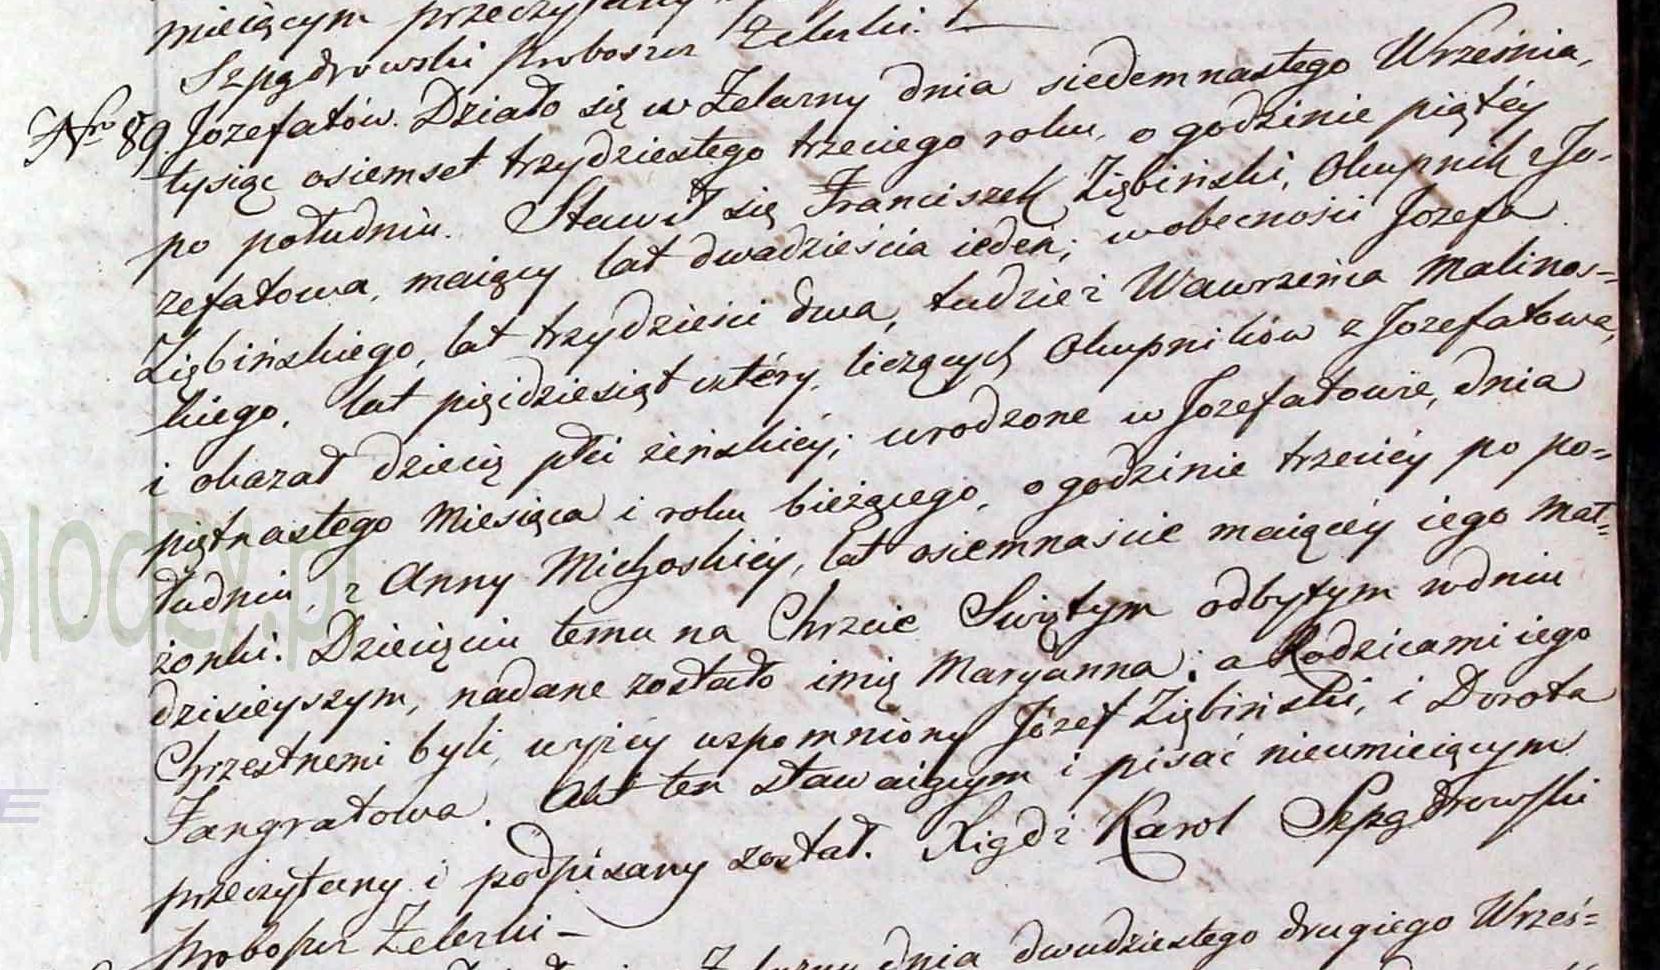 mieiącym przeczytany
Szpądrowski Proboszcz Żelerski. —
Nro 89. Jozefatów. Działo się w Żelazny dnia siedemnastego Września,
tysiąc osiemset trzydziestego trzeciego roku, o godzinie piątéy
po południu. Stawił się Franciszek Ziębiński, Okupnik z Jo-
zefatowa, maiący lat dwadzieścia ieden; wobecności Jozefa
Ziębińskiego, lat trzydzieści dwa, tudzież Wawrzeńca Malinos-
kiego, lat pięćdziesiąt cztéry liczących Okupników z Jozefatowa,
i okazał dziecię płci żeńskiéy; urodzone w Jozefatowie, dnia
piętnastego Miesiąca i roku bieżącego, o godzinie trzeciéy po po-
łudniu, z Anny Michoskiéy, lat osiemnaście maiącéy iego Mał-
żonki. Dziecięciu temu na Chrzcie Swiętym odbytym wdniu
dzisieyszym, nadane zostało imię Maryanna; a Rodzicami iego
Chrzestnemi byli, wyżéy wspomniony Józef Ziębiński, i Dorota
Fangratowa. Akt ten stawaiącym i pisać nieumieiącym
przeczytany i podpisany został. Xiądz Karol Szpądrowski
Proboszcz Żelerski —
dnia dwudziestego drugiego Wrześ-